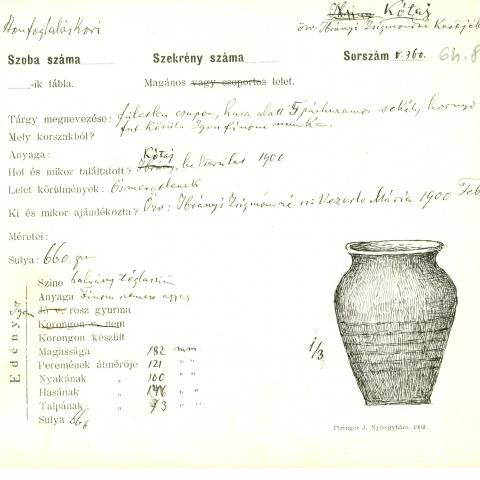 Ibrány Kótaj
Honfoglaláskori
özv. Ibrányi Zsigmondné Kastéjk
Szoba száma Szekrény száma Sorszám v. 360. 64.8
-ik tábla. Magános vagy csoportos lelet.
Tárgy megnevezése: fületlen csupor, hasa alatt 5 párhuzamos sekély hornyo
Mely korszakból? fut körül. Igen finom munka.
Anyaga:
Kótaj
Hol és mikor találtatott? Ibrány, belterület 1900
Lelet körülmények: Esmeretlenek
Ki és mikor ajándékozta? Özv: Ibrányi Zsigmondné sz: Vezerle Mária 1900 Feb
Méretei:
Sulya: 660 gr
Edény:
Szine halvány téglaszin
Anyaga Finom nemes agyag
Igen Jó v. rosz gyurma
Korongon v. nem
Korongon készült
Magassága 182 mm
Peremének átmérője 121 " "
Nyakának " 100 " "
Hasának " 146 " "
Talpának " 73 " "
Sulya 666
1/3
Piringer J. Nyíregyháza. 1902.